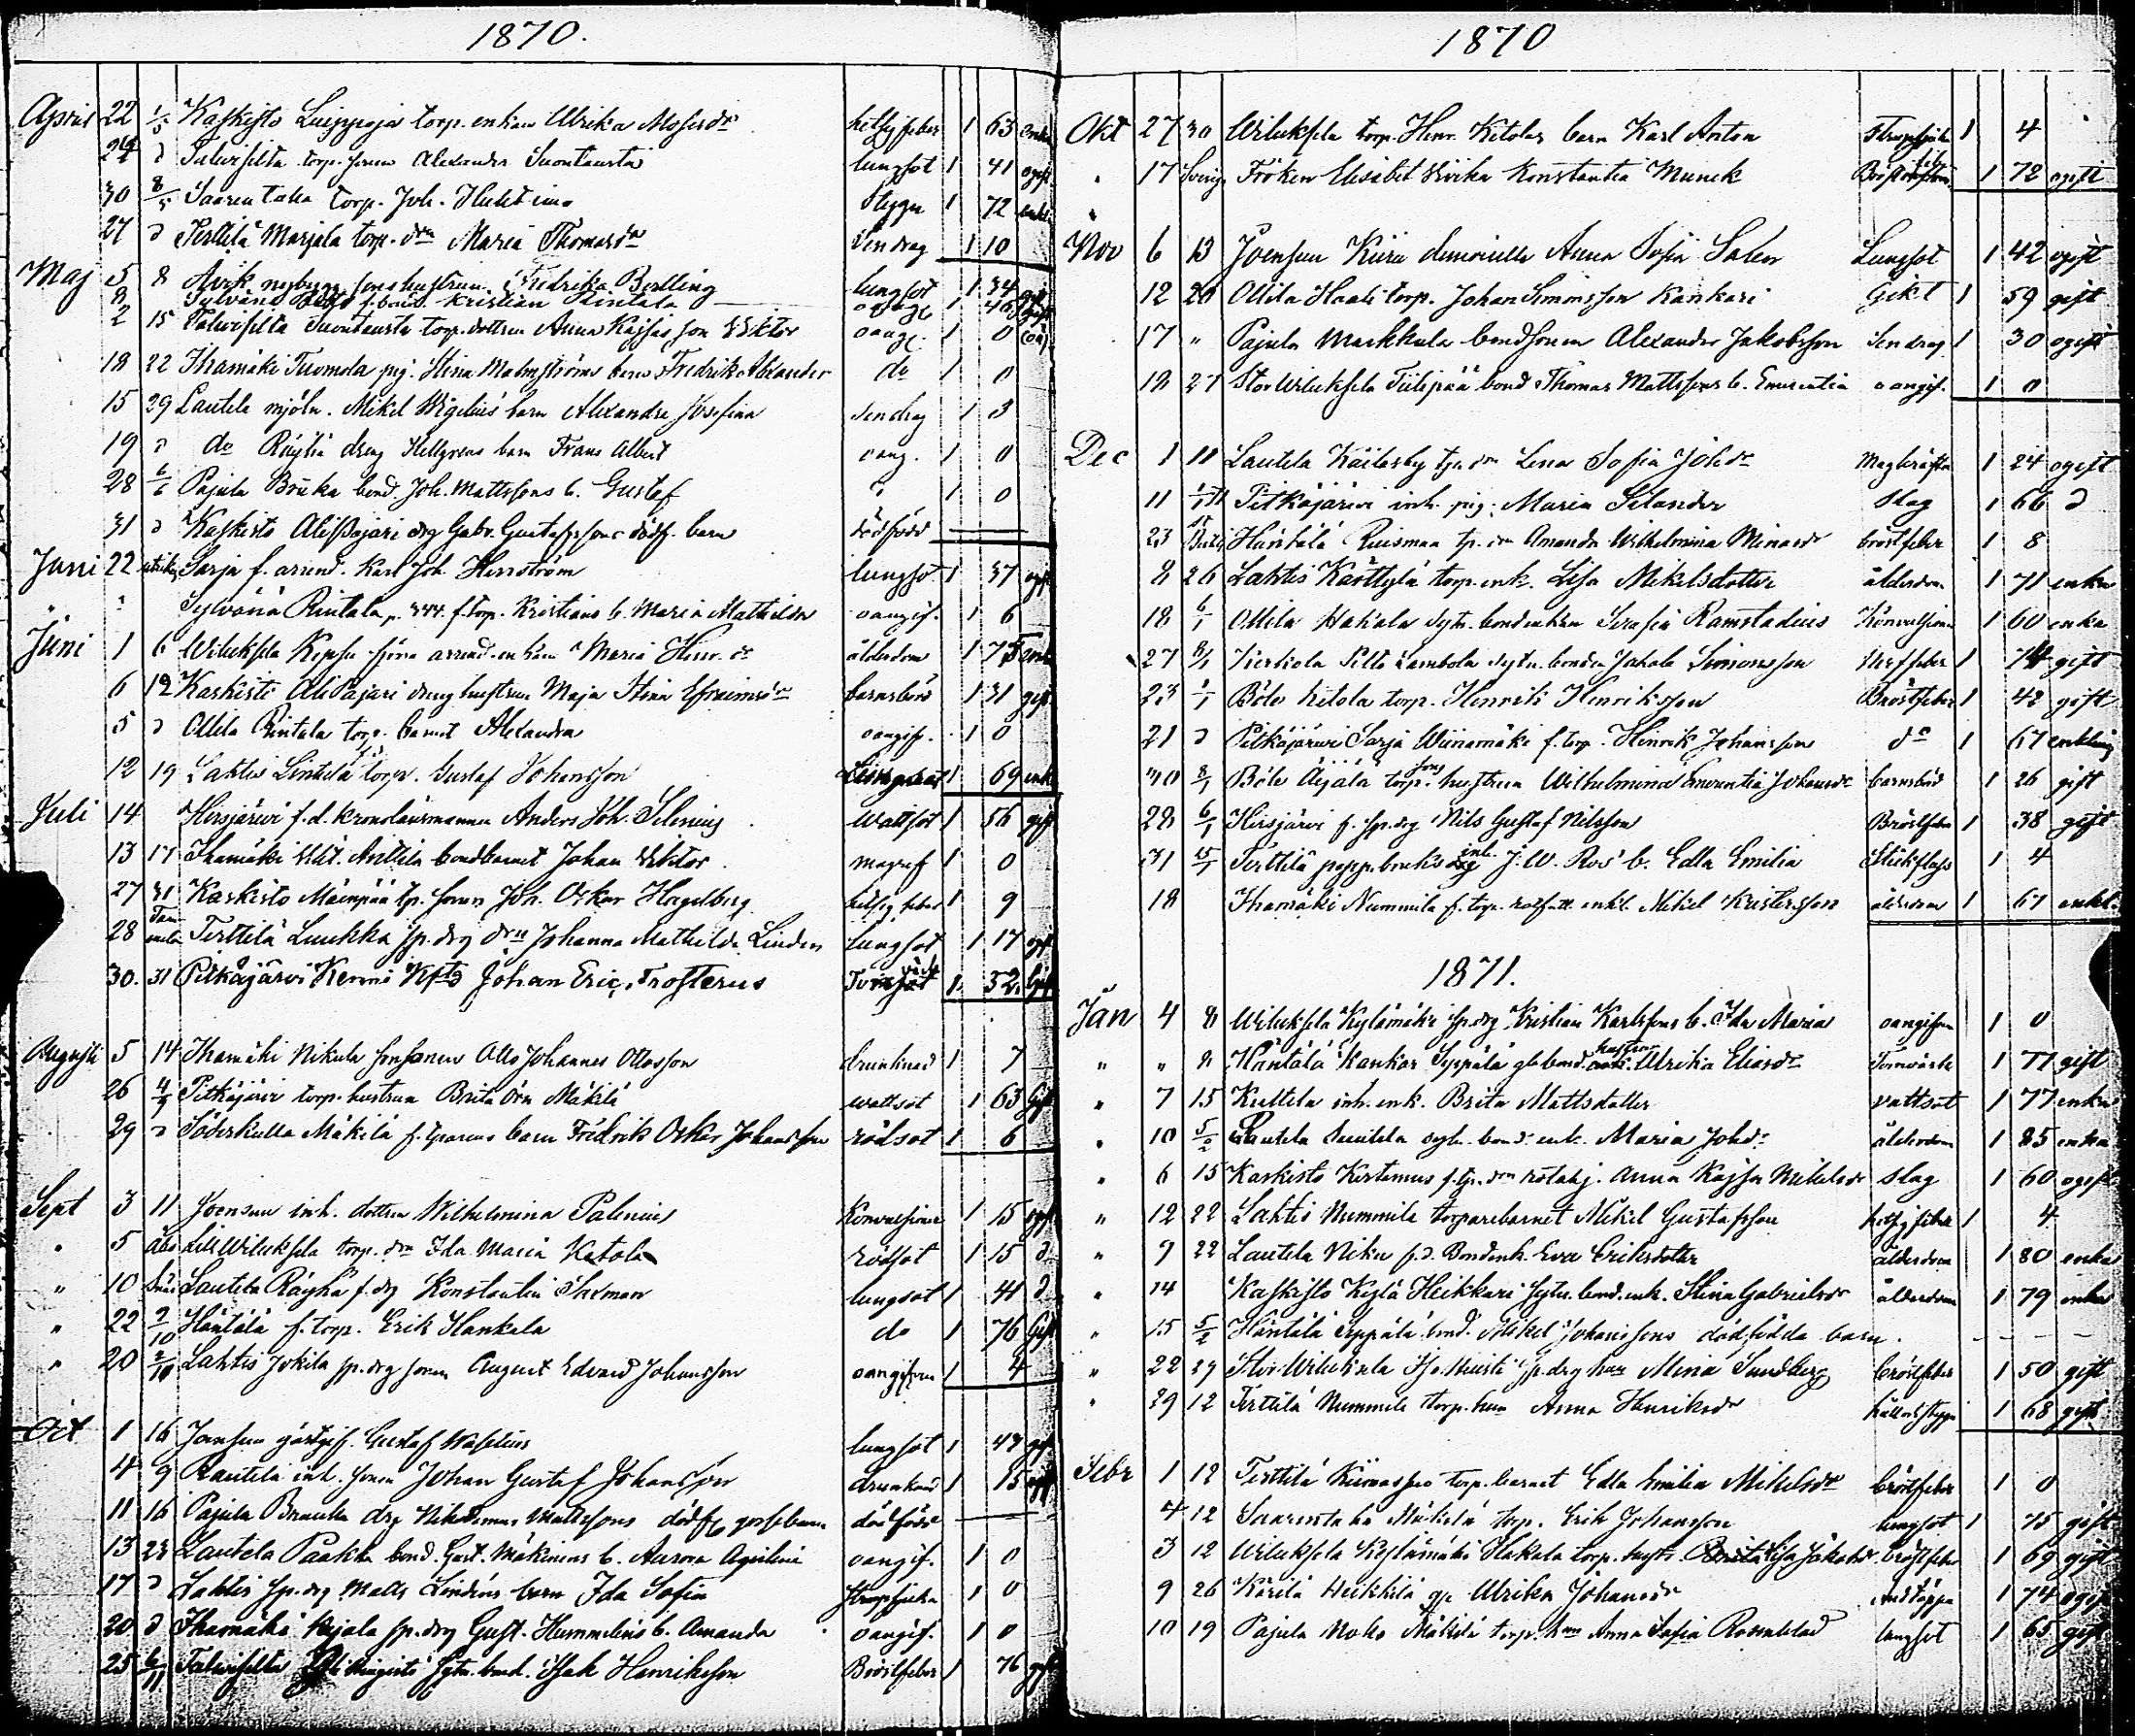 1870.
April 22 1/5 Kaskisto Luippoja torp. enkan Ulrika Mosisdr hetsig feber 1 63 enka
24 d Talvisilta torp. sonen Alexander Suontausta lungsot 1 41 ogift
30 8/5 Saarentaka torp. Joh. Huhtimo Stygn 1 72 enkl.
27 d Terttilä Marjala torp. drn Maria Thomasdr Sendrag 1 10
Maj 5 8 Avik nybygg. sons hustrun Fredrika Bertling lungsot 1 34 gift
8 Sylvänä f. bond. Kristian Rintala 1 46 gift
2 15 Talvisilta Suontausta torp. dottren Anna Kajsas son Viktor oang. 1 0 (oä)
18 22 Ihamäki Tuomola pig. Stina Malmströms barn Fredrik Alexander do 1 0
15 29 Lautela mjöln. Mikel Wigelius barn Alexandra Josefina Sendrag 1 3
19 d do Räyhä dräng Hellgrens barn Frans Albert oang. 1 0
28 6/6 Pajula Bruka bond. Joh. Mattssons b. Gustaf d 1 0
31 d Kaskisto Alipajari drg Gabr. Gustafssons dödf. barn dödfödd
Juni 22 Sarja f. arrend. Karl Joh. Herrström lungsot 1 37 ogift
" Sylvänä Rintala p. 344. f. torp. Kristians b. Maria Mathilda oangif. 1 6
Juni 1 6 Wiluksela Kipsu arrend. enkan Maria Henr. dr ålderdom 1 75 enka
6 12 Kaskisto Ali Pajari dräng hustrun Maja Stina Efraimsdr barnsbörd 1 31 gift
5 d Ollila Rintala torp. barnet Alexandra oangif. 1 0
12 19 Lahtis Lintula torp. Gustaf Johansson 1 69 enkl
Juli 14 Hirsjärvi f. d. kronolänsmannen Anders Joh. Silenius Wattsot 1 56 gift
13 17 Ihamäki Anttila bondbarnet Johan Viktor magref 1 0
27 31 Kaskisto Mäenpää tp. sonen Joh. Oskar Hagelberg hetsig feber 1 9
28 Tammela Terttilä Luukka sp. drg drn Johanna Mathilda Linden lungsot 1 17 ogift
30. 31 Pitkäjärvi Kenni Johan Eric Frosterus Tvinsot 1 52 Gift
Augusti 5 14 Ihamäki Nikula sonsonen Otto Johannes Ottosson drunknad 1 7
26 4/9 Pitkäjärvi torp. hustrun Brita Örn Mäkilä wattsot 1 63 Gift
29 d Söderkulla Mäkilä f. tparens barn Fredrik Oskar Johansson rödsot 1 6
Sept 3 11 Joensuu inh. dottren Wilhelmina Palenius Konvulsioner 1 15 ogift
" 5 Åbo LillWiluksela torp. drn Ida Maria Ketola rödsot 1 15 d
" 10 Lautela Räyhä f. drg Konstantin Saxman lungsot 1 41 d
" 22 2/10 Häntälä f. torp. Erik Hankala do 1 76 Gift
" 20 2/10 Lahtis Jokila sp. drg sonen August Edvard Johansson oangifven 1 4
Oct 1 16 Joensuu gästgif. Gustaf Waselius lungsot 1 47 gift
4 9 Rautela inh. sonen Johan Gustaf Johansson drunknad 1 15 ogift
11 16 Pajula Bruuka drg Nikodemus Mattssons dödf. gossebarn dödfödd
13 23 Lautela Paakka bond. Gust. Mäkinens b. Aurora Aqvilina oangif. 1 0
17 d Lahtis sp. drg Matts Lindens barn Ida Sofia Strupsjuka 1 0
20 d Ihamäki Kujala sp. drg Gust. Hummelins b. Amanda oangif. 1 0
25 6/11 Talvisilta sytn. bond. Isak Henriksson Bröstfeber 1 76 gift
1870
Okt 27 30 Wiluksela torp. Henr. Ketolas barn Karl Anton Strupsjuka 1 4
" 17 Fröken Elisabet Ulrika Konstantia Munck Bröstfeber 1 72 ogift
Nov 6 13 Joensuu Kiiru demoiselle Anna Sofia Salen Lungsot 1 42 ogift
12 20 Ollila Haali torp. Johan Simonsson Kankari Gikt 1 59 gift
17 " Pajula Markkula bondsonen Alexander Jakobsson Sendrag 1 30 ogift
18 27 StorWiluksela Tiilipää bond Thomas Mattssons b. Emerentia oangif. 1 0
Dec 1 11 Lautela Käilasby tp. drn Lena Sofia Johdr Magkräfta 1 24 ogift
11 Pitkäjärvi inh. pig. Maria Silander Slag 1 66 d
23 Häntälä Ruisman tp. drn Amanda Wilhelmina Minasdr bröstfeber 1 8
8 26 Lahtis Kärttylä torp. enk. Lisa Mikelsdotter ålderdom 1 71 enka
18 6/1 Ollila Hakala sytn. bondenkan Serafia Ramstadius Konvulsion 1 60 enka
27 6/1 Kerkola Pello Lambola sytn. bonden Jakob Simonsson Nerffeber 1 74 gift
23 1/1 Böle Ketola torp. Henrik Henriksson Bröstfeber 1 42 gift
21 d Pitkäjärvi Sarja Wiinamäki f. torp. Henrik Johansson do 1 67 enkling
30 8/1 Böle Äijälä torp. sons hustrun Wilhelmina Emerentia Johansdr barnsbörd 1 26 gift
28 6/1 Hirsjärvi f. sp. drg Nils Gustaf Nilsson Bröstfeber 1 38 gift
31 15/1 Terttilä papp. bruks inh. J. W. Ros' b. Edla Emilia Stickfluss 1 4
18 Ihamäki Nummila f. torp. enkl. Mikel Kristersson ålderdom 1 67 enkl.
1871.
Jan 4 8 Wiluksela Kylämäki sp. drg Kristian Karlssons b. Ida Maria oangifven 1 0
" " 8 Häntälä Kankar Seppälä gla bond. hustrun Ulrika Eliasdr Tvinsjuka 1 77 gift
" 7 15 Kultela inh. enk. Brita Mattsdotter vattsot 1 77 enka
" 10 5/2 Lautela Suutela sytn. bond. enk. Maria Johdr ålderdom 1 85 enka
" 6 15 Kaskisto Kertumus f. tp. drn rotehj. Anna Kajsa Mikelsdr slag 1 60 ogift
" 12 22 Lahtis Nummila torparebarnet Mikel Gustafsson hetsig feber 1 4
" 9 22 Lautela Niku f. d. Bondenk. Eva Eriksdotter ålderdom 1 80 enka
" 14 Kaskisto Kylä Heikkari sytn. bond. enk. Stina Gabrielsdr ålderdom 1 79 enka
" 15 5/2 Häntälä Seppälä bond. Mikel Johanssons dödfödda barn.
" 22 29 Stor Wiluksela sp. drg hun Mina Sundberg bröstfeber 1 50 gift
" 29 12 Terttilä Nummila torp. hun Anna Henriksdr håll och stygn 1 68 gift
Febr 1 12 Terttilä Kiimassuo torp. barnet Edla Emilia Mikelsdr bröstfeber 1 0
4 12 Saarentaka Mäkelä torp. Erik Johansson lungsot 1 75 gift
3 12 Wiluksela Kylämäki Hakala torp. hustr. Lisa Jakobsdr bröstfeber 1 69 gift
9 26 Kärilä Heikkilä gp Ulrika Johansdr andtäppa 1 74 ogift
10 19 Pajula Noho Mäkilä torp. hun Anna Sofia Rosenblad lungsot 1 65 gift